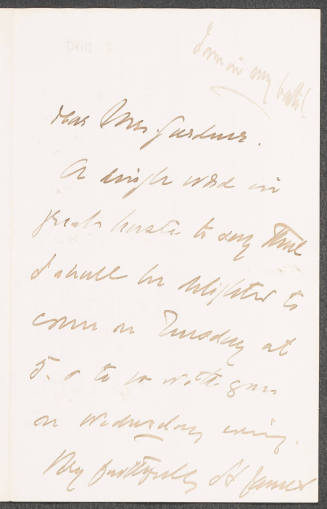 I am in my bath!
Dear Mrs Gardner.
A single word in
great haste to say that
I shall be delighted to
come on Tuesday at
5. & to go with you
on Wednesday evening.
Very faithfully H James